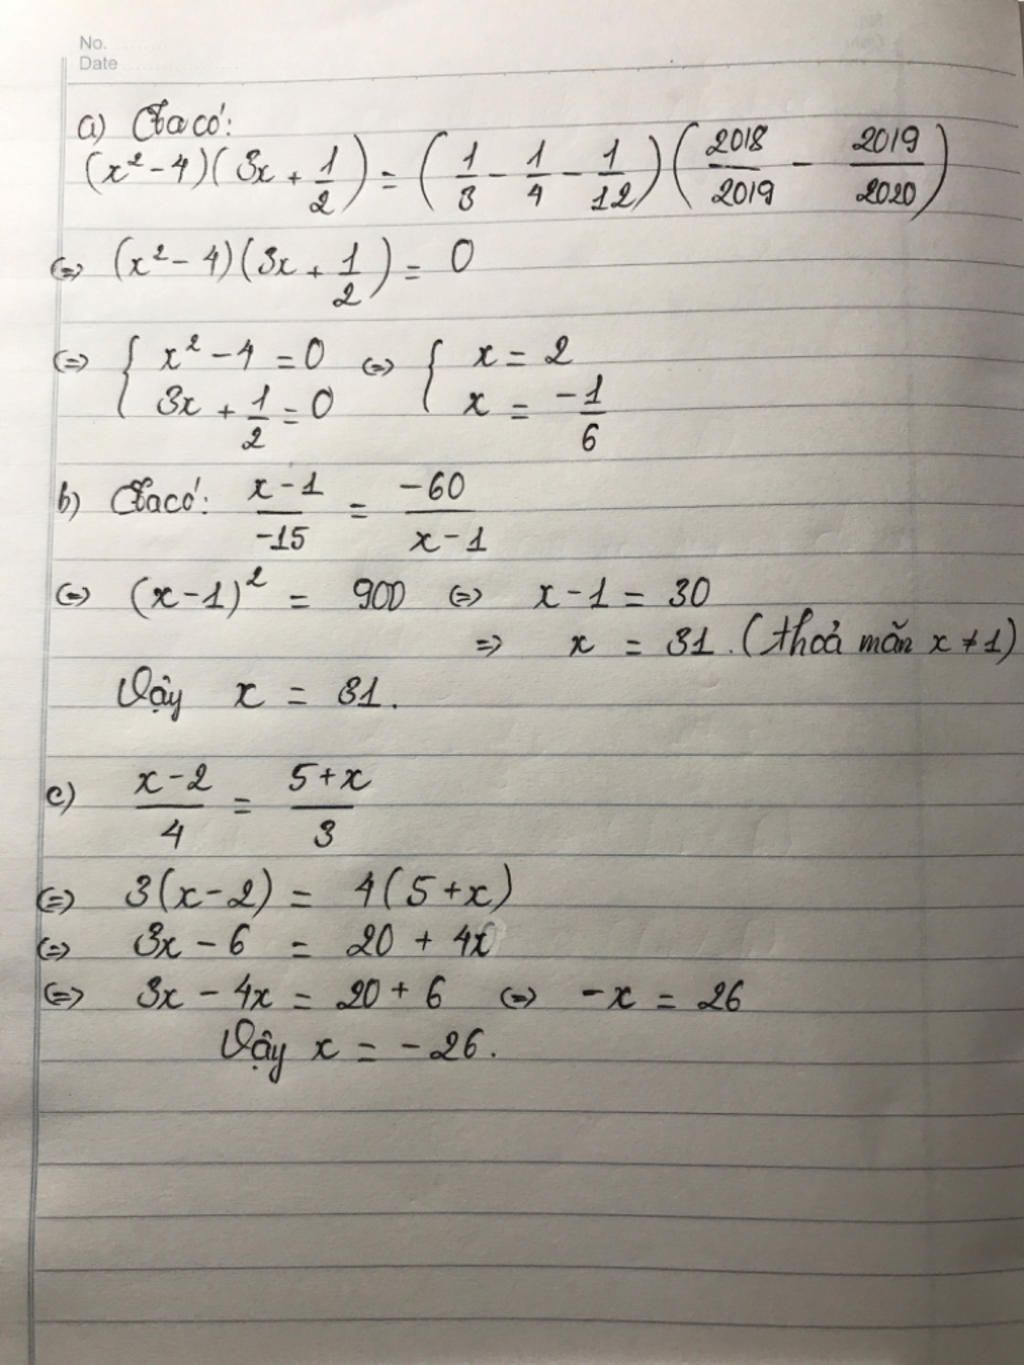 No.
Date
a) Ta có:
(x² - 4)(3x + 1/2) = (1/3 - 1/4 - 1/12)(2018/2019 - 2019/2020)
(=) (x² - 4)(3x + 1/2) = 0
(=) { x² - 4 = 0 (=) { x = 2
3x + 1/2 = 0 x = -1/6
b) Ta có: x-1/-15 = -60/x-1
(=) (x-1)² = 900 (=) x-1 = 30
=) x = 31. (thoả mãn x ≠ 1)
Vậy x = 31.
c) x-2/4 = 5+x/3
(=) 3(x-2) = 4(5+x)
(=) 3x - 6 = 20 + 4x
(=) 3x - 4x = 20 + 6 (=) -x = 26
Vậy x = -26.